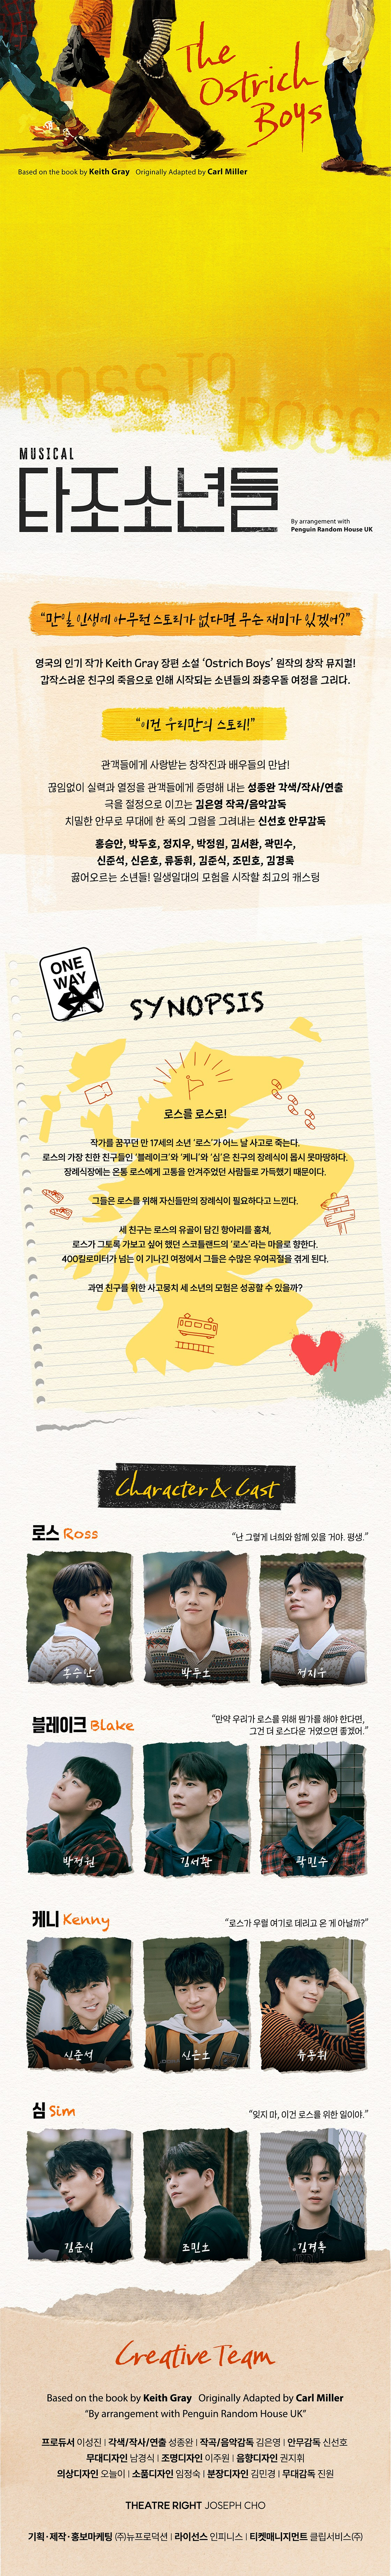 The
Ostrich
Boys
Based on the book by Keith Gray Originally Adapted by Carl Miller
ROSS TO
ROSS
MUSICAL
타조소년들
By arrangement with
Penguin Random House UK
“만일 인생에 아무런 스토리가 없다면 무슨 재미가 있겠어?”
영국의 인기 작가 Keith Gray 장편 소설 ‘Ostrich Boys’ 원작의 창작 뮤지컬!
갑작스러운 친구의 죽음으로 인해 시작되는 소년들의 좌충우돌 여정을 그리다.
“이건 우리만의 스토리!”
관객들에게 사랑받는 창작진과 배우들의 만남!
끊임없이 실력과 열정을 관객들에게 증명해 내는 성종완 각색/작사/연출
극을 절정으로 이끄는 김은영 작곡/음악감독
치밀한 안무로 무대에 한 폭의 그림을 그려내는 신선호 안무감독
홍승안, 박두호, 정지우, 박정원, 김서환, 곽민수,
신준석, 신은호, 류동휘, 김준식, 조민호, 김경록
끓어오르는 소년들! 일생일대의 모험을 시작할 최고의 캐스팅
ONE
WAY
SYNOPSIS
로스를 로스로!
작가를 꿈꾸던 만 17세의 소년 ‘로스’가 어느 날 사고로 죽는다.
로스의 가장 친한 친구들인 ‘블레이크’와 ‘케니’와 ‘심’은 친구의 장례식이 몹시 못마땅하다.
장례식장에는 온통 로스에게 고통을 안겨주었던 사람들로 가득했기 때문이다.
그들은 로스를 위해 자신들만의 장례식이 필요하다고 느낀다.
세 친구는 로스의 유골이 담긴 항아리를 훔쳐,
로스가 그토록 가보고 싶어 했던 스코틀랜드의 ‘로스’라는 마을로 향한다.
400킬로미터가 넘는 이 기나긴 여정에서 그들은 수많은 우여곡절을 겪게 된다.
과연 친구를 위한 사고뭉치 세 소년의 모험은 성공할 수 있을까?
Character & Cast
로스 Ross
“난 그렇게 너희와 함께 있을 거야. 평생.”
홍승안 박두호 정지우
블레이크 Blake
“만약 우리가 로스를 위해 뭔가를 해야 한다면,
그건 더 로스다운 거였으면 좋겠어.”
박정원 김서환 곽민수
케니 Kenny
“로스가 우릴 여기로 데리고 온 게 아닐까?”
신준석 신은호 류동휘
심 Sim
“잊지 마, 이건 로스를 위한 일이야.”
김준식 조민호 김경록
Creative Team
Based on the book by Keith Gray Originally Adapted by Carl Miller
“By arrangement with Penguin Random House UK”
프로듀서 이성진 | 각색/작사/연출 성종완 | 작곡/음악감독 김은영 | 안무감독 신선호
무대디자인 남경식 | 조명디자인 이주원 | 음향디자인 권지휘
의상디자인 오늘이 | 소품디자인 임정숙 | 분장디자인 김민경 | 무대감독 진원
THEATRE RIGHT JOSEPH CHO
기획·제작·홍보마케팅 (주)뉴프로덕션 | 라이선스 인피니스 | 티켓매니지먼트 클립서비스(주)